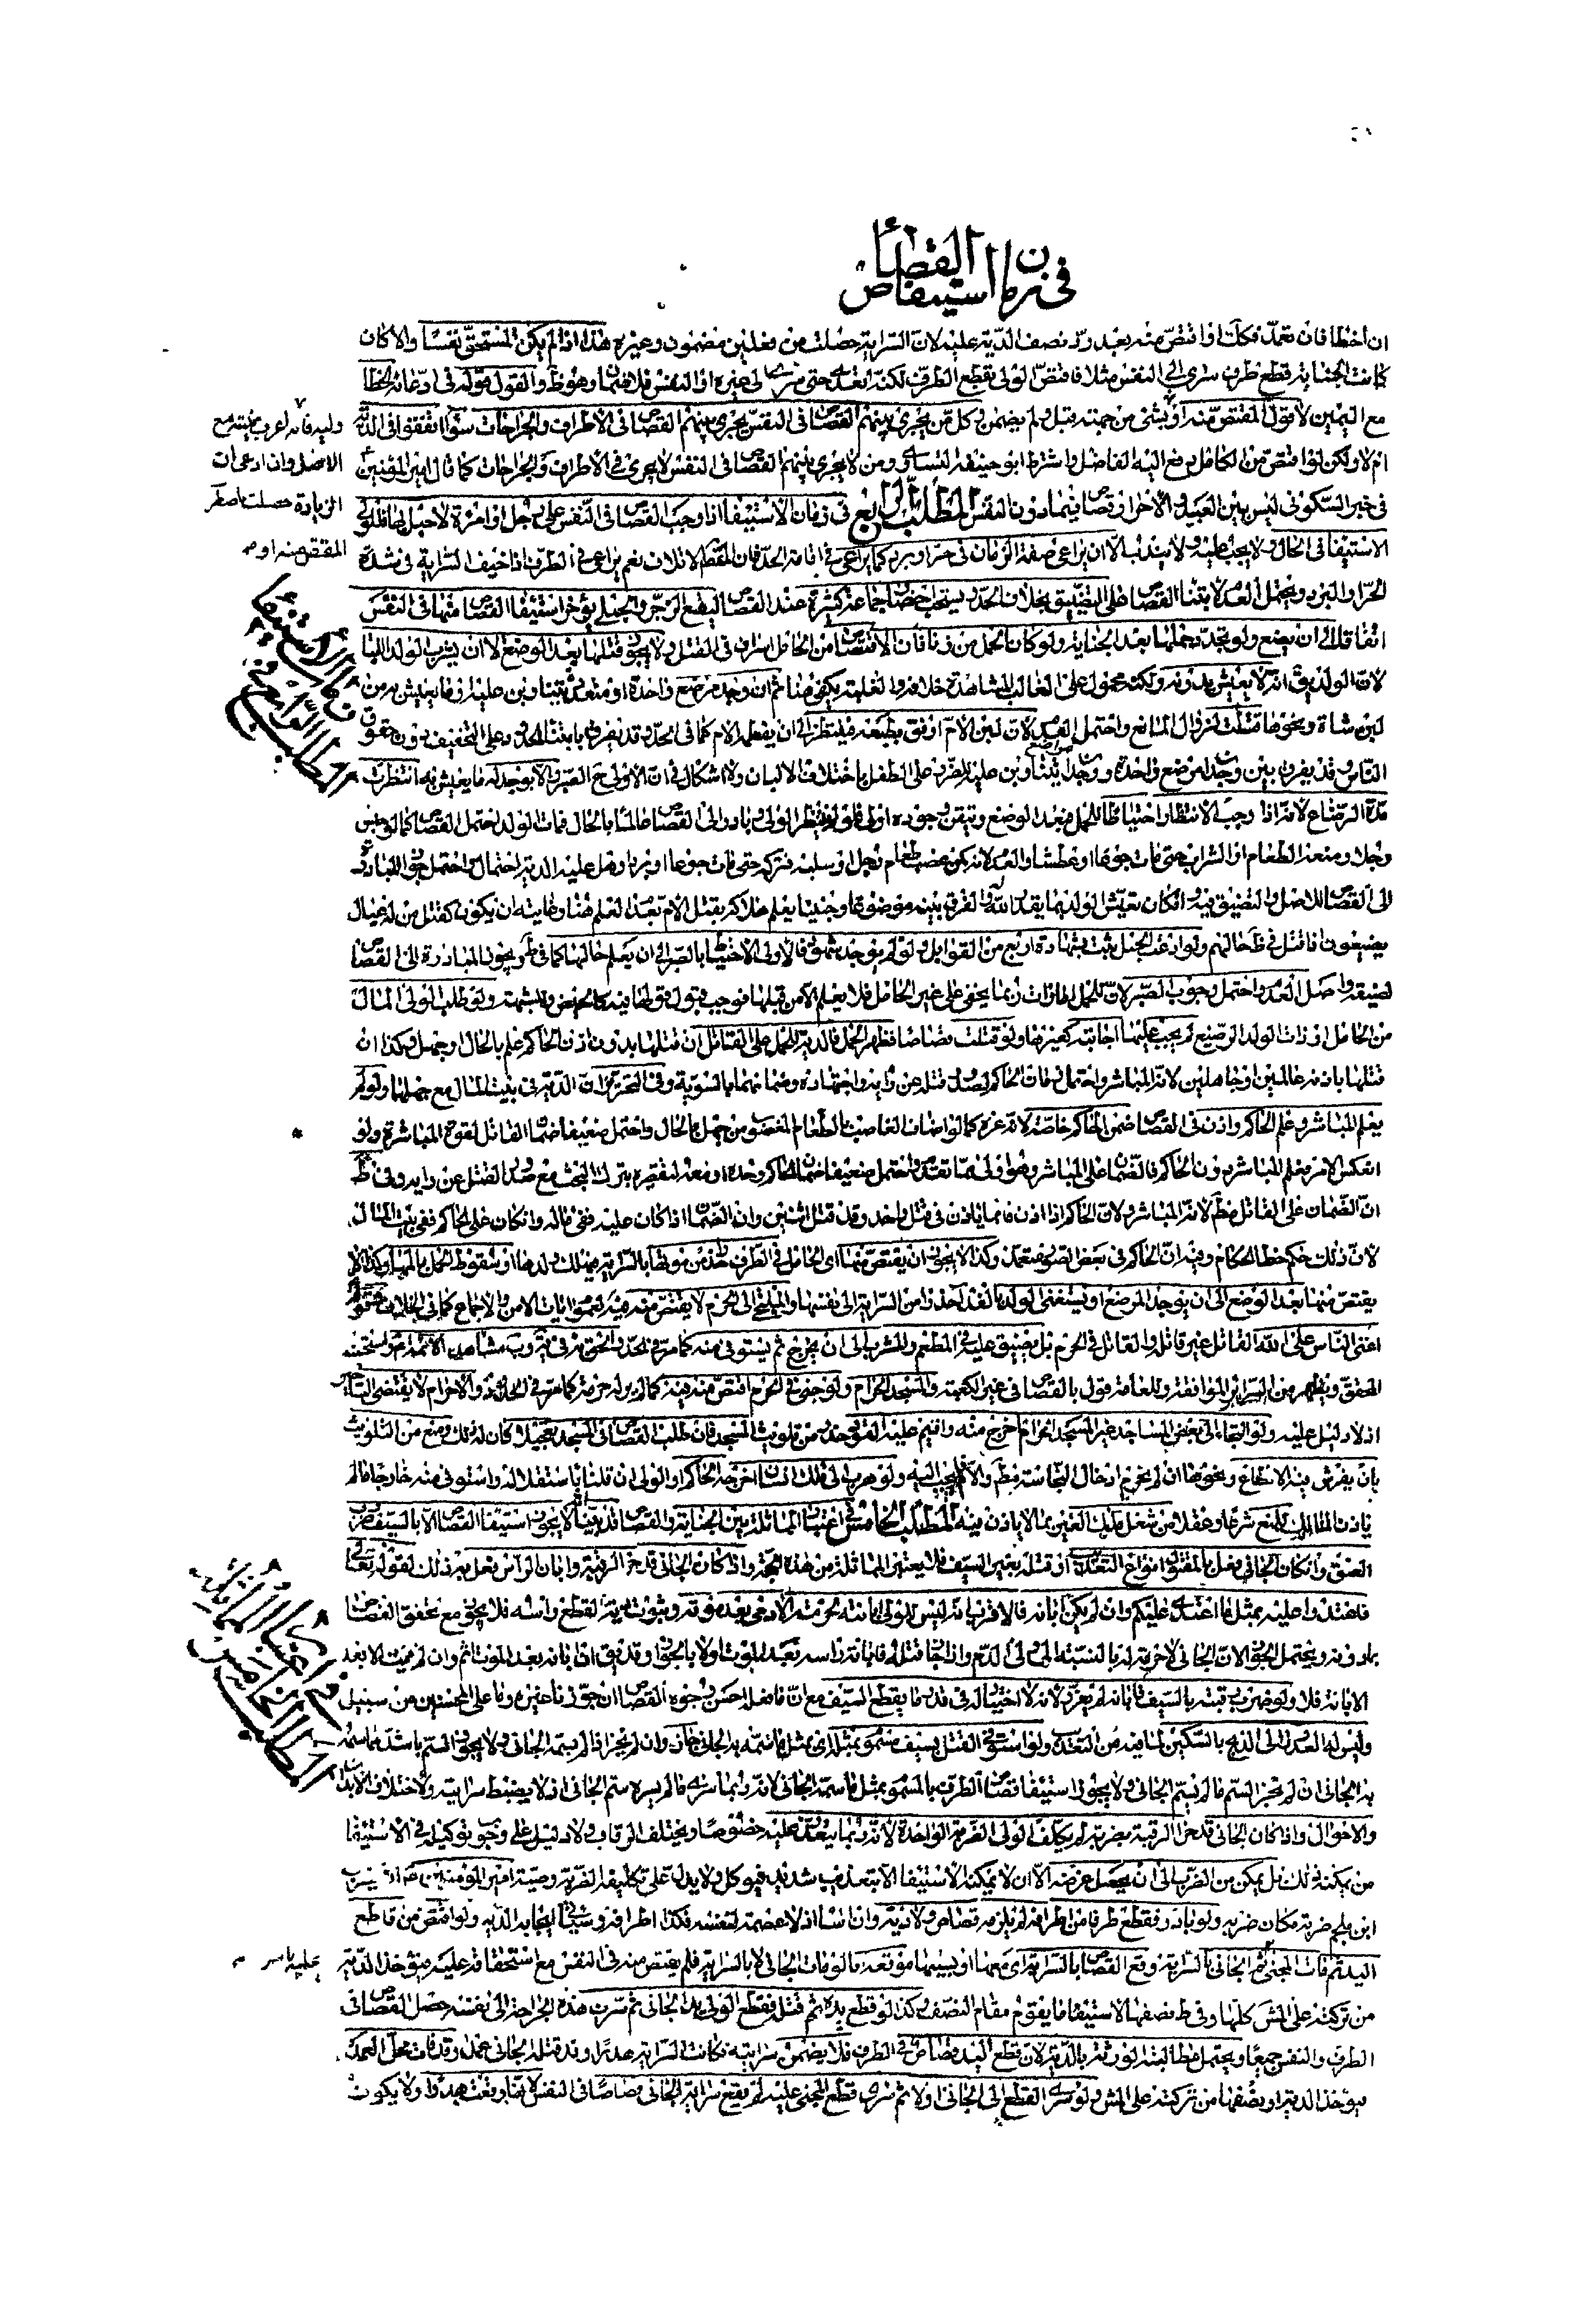 في زمان استيفاء القصاص
ان أخطأ فان تعمد فكك او اقتص منه بعد رد نصف الدية عليه لان السراية حصلت من فعلين مضمون وغيره هذا اذا لم يكن المستحق نفسا والا كان
كانت الجناية قطع طرف سرى الى النفس مثلا فاقتص الولي بقطع الطرف لكنه تعدى حتى سرى الى غيره او النفس فلا ضمان وهو ظ والقول قوله في ادعائه الخطأ
مع اليمين لا قول المقتص منه او قبل ولم يضمن وكل من يجري بينهم القصاص في النفس يجري بينهم القصاص في الأطراف والجراحات سواء اتفقوا في الدية
ام لا ولكن لو اقتص من الكامل دفع اليه الفاضل واشترط ابو حنيفة التساوي ومن لا يجري بينهم القصاص في النفس لا يجري في الاطراف والجراحات كما قال امير المؤمنين
في خبر السكوني ليس بين العبيد والاحرار قصاص فيما دون النفس المطلب الرابع في زمان الاستيفاء اذا وجب القصاص في النفس على رجل او امرأة لاحبل لها فللولي
الاستيفاء في الحال ولا يجب عليه ولا يندب الا ان يراعي صفة الزمان في حر او برد كما يراعى في اقامة الحد فان المقص الاتلاف نعم يراعى في الطرف اذا خيف السراية في شدة
الحر او البرد ويحتمل العدم لابتناء القصاص على التضييق بخلاف الحد ويستحب احضار جماعة كثيرة عند القصاص ليقع الزجر والحبلى يؤخر استيفاء القصاص منها في النفس
اتفاقا الى ان يضع ولو تجدد حملها بعد الجناية ولو كان الحمل من زنا فان الاقتصاص من الحامل اسراف في القتل ولا يجوز قتلها بعد الوضع الا ان يشرب الولد اللبا
لان الولد يق انه لا يعيش بدونه ولكنه محمول على الغالب للمشاهدة خلافه والغلبة يكفي هنا ثم ان وجد مرضع واحدة او متعددة يتناوبن عليه او ما يعيش به من
لبن شاة ونحوها قتلت لزوال المانع واحتمل العدم لان لبن الام اوفق بطبعه فينتظر الى ان يفطمه الام كما في الحد وقد يفرق بابتناء الحدود على التخفيف دون حقوق
الناس وقد يفرق بين وجدان مرضع واحدة ووجدان مراضع يتناوبن عليه للضرر على الطفل باختلاف الالبان ولا اشكال في ان الاولى ح الصبر والا يوجد له ما يعيش به انتظرت
مدة الرضاع لانه اذا وجب الانتظار احتياطا للحمل فبعد الوضع وتيقن وجوده اولى فلو لم ينتظر الولي وبادر الى القصاص عالما بالحال فمات الولد احتمل القصاص كما لو حبس
رجلا ومنعه الطعام او الشراب حتى مات جوعا او عطشا والعدم لانه كمن غصب طعام رجل او سلبه فتركه حتى مات جوعا او بردا وهل عليه الدية احتمال احتمل جواز المبادرة
الى القصاص للاصل والتضييق فيه وامكان تعيش الولد بما يقدر الله والفرق بينه موضوعا وجنينا يعلم هلاكه بقتل الام بعدم العلم هنا وغايته ان يكون كقتل من له عيال
يضيعون اذا قتل في ظ حالهم ولو ادعت الحبل ثبت بشهادة اربع من القوابل ولو لم يوجد شهود فالاولى الاحتياط بالصبر الى ان يعلم حالها كما في ط ويجوز المبادرة الى القصاص
لضيقه واصل العدم واحتمل وجوب الصبر لان للحمل امارات ربما يخفى على غير الحامل فلا يعلم الا من قبلها فوجب قبول قولها فيه كالحيض وللشبهة ولو طلب الولي المال
من الحامل او ذات الولد الرضيع لم يجب عليها اجابته كغيرها ولو قتلت قصاصا فظهر الحمل فالدية للحمل على القاتل ان قتلها بدون اذن الحاكم علم بالحال او جهل وكذا ان
قتلها باذنه عالمين او جاهلين لانه المباشر واحتمل ضمان الحاكم لصدور قتله عن رأيه واجتهاده وضمانهما بالسوية وفي التحرير ان الدية في بيت المال مع جهلهما ولو لم
يعلم المباشر وعلم الحاكم واذن في القصاص ضمن الحاكم خاصة لانه غره كما لو اضاف الغاصب بالطعام المغصوب من جهل بالحال واحتمل ضعيفا ضمان القاتل لقوة المباشرة ولو
انعكس الامر فعلم المباشر دون الحاكم فالضمان على المباشر وهو اولى مما تقدم واحتمل ضعيفا ضمان الحاكم وحده او معه لتقصيره بترك البحث مع صدور القتل عن رأيه وفي ط
ان الضمان على القاتل مط لانه المباشر ولان الحاكم اذا اذن فانما ياذن في قتل واحد وقد قتل اثنين وان الضمان اذا كان عليه ففي ماله وان كان على الحاكم ففي بيت المال
لان ذلك حكم خطأ الحكام وفيه ان الحاكم في بعض الصور متعمد وكذا لا يجوز ان يقتص منها اي الحامل في الطرف حذرا من موتها بالسراية فيهلك ولدها او سقوط الحمل بالم وكذا لا
يقتص منها بعد الوضع الى ان يوجد المرضع او يستغني الولد بالغذاء حذرا من السراية الى نفسها والملتجئ الى الحرم لا يقتص منه فيه لعموم ايات الامن والاجماع كما في الخلاف
اعتى الناس على الله القاتل غير قاتله والقاتل في الحرم بل يضيق عليه في المطعم والمشرب الى ان يخرج ثم يستوفى منه كما مر في الحد والحق به في يه وب مشاهد الائمة ع واستحسنه
المحقق ويظهر من السرائر الموافقة وللعامة قول بالقصاص في غير الكعبة والمسجد الحرام ولو جنى في الحرم اقتص منه فيه كما لم ير له حرمة كما مر في الحدود والاحرام لا يقتضي التأخير
اذ لا دليل عليه ولو التجأ الى بعض المساجد غير المسجد الحرام اخرج منه واقيم عليه القود حذرا من تلويث المسجد فان طلب القصاص في المسجد تعجيلا كان له ذلك ومنع من التلويث
بان يفرش فيه الانطاع ونحوها ان لم يحرم ادخال النجاسة مط والا لم يجب اليه ولو هرب الى ملك انسان اخرجه الحاكم او الولي ان قلنا باستقلاله واستوفى منه خارجا ما لم
ياذن المالك للمنع شرعا وعقلا من شغل ملك الغير بما لا ياذن فيه المطلب الخامس في اعتبار المماثلة بين الجناية والقصاص قد بينا انه لا يجوز استيفاء القصاص الا بالسيف وضرب
العنق وان كان الجاني فعل بالمقتول انواع التعذيب او قتله بغير السيف فلا يعتبر المماثلة من هذه الجهة واذا كان الجاني قد حز الرقبة وابان الراس فعل به ذلك لقوله تعالى
فاعتدوا عليه بمثل ما اعتدى عليكم وان لم يكن ابانه فالاقرب انه ليس للولي ابانته لحرمة الآدمي بعد موته وثبوت دية لقطع راسه فلا يجوز مع تحقق القصاص
بدونه ويحتمل الجواز لان الجاني لا حرمة له بالنسبة الى ولي الدم واذا الجاني قتله فابانة راسه بعد الموت اولا بالجواز وقد يق ان ابانه بعد الموت ثم وان لم يمت الا بعد
الابانة فلا ولو ضرب رقبته بالسيف فابانه لم يعزر لانه لا اختيار له في قدر ما يقطع السيف مع ان ما فعل احسن وجوه القصاص ان جوزناه وما على المحسنين من سبيل
وليس له العدول الى الذبح بالسكين لما فيه من التعذيب ولو استوفى القتل بسيف مسموم بمثله اي بمثل ما سمه به الجاني جاز وان لم يجز اذا لم يسمه الجاني ولا يجوز السم باشد مما سمه
به الجاني ان لم نجز السم ما لم يسم الجاني ولا يجوز استيفاء قصاص الطرف بالمسموم بمثل ما سمه الجاني لانه ربما سرى ما لم يسره سم الجاني اذ لا يضبط سرايته ولاختلاف الابدان
والاحوال واذا كان الجاني قد حز الرقبة بضربة لم يكلف الولي الضربة الواحدة لانه ربما يتعذر عليه خصوصا ويختلف الرقاب ولا دليل على وجوب توكيله في الاستيفاء
من يمكنه ذلك بل يمكن من الضرب الى ان يحصل غرضه الا ان لا يمكنه الاستيفاء الا بتعذيب شديد فيوكل ولا يدل على تكليفه الضربة وصية امير المؤمنين بضرب
ابن ملجم ضربة مكان ضربة ولو بادر فقطع طرفا من اطرافه لم يلزمه قصاص ولا دية وان اساء اذ لا عصمة لنفسه فكذا اطرافه وسيأتي ايجابه الدية ولو اقتص من قاطع
اليد ثم مات المجني ثم الجاني بالسراية وقع القصاص بالسراية اي معها او بسببها موقعه بالوفات الجاني لا بالسراية فلم يقتص منه في النفس مع استحقاقه عليه فيؤخذ الدية
من تركته على المش كلها وفي ط نصفها لاستيفاء ما يقوم مقام النصف وكذا لو قطع يده ثم قتله فقطع الولي يد الجاني ثم سرت هذه الجراحة الى نفسه حصل القصاص في
الطرف والنفس جميعا ويحتمل مطالبة الورثة بالدية لان قطع اليد قصاص في الطرف فلا يضمن سرايته فكانت السراية هدرا وقد قتله الجاني عمدا وقد فات محل العمد
فيؤخذ الدية او نصفها من تركته على المش ولو سرى القطع الى الجاني اولا ثم سرى قطع المجني عليه لم يقع سراية الجاني قصاصا في النفس لانها وقعت هدرا ولا يكون
وليه فانه اعرف بنيته مع
الاصل وان ادعى ان
الزيادة حصلت باضطراب
المقتص منه او
المطلب الرابع في زمان الاستيفاء
المطلب الخامس في اعتبار المماثلة